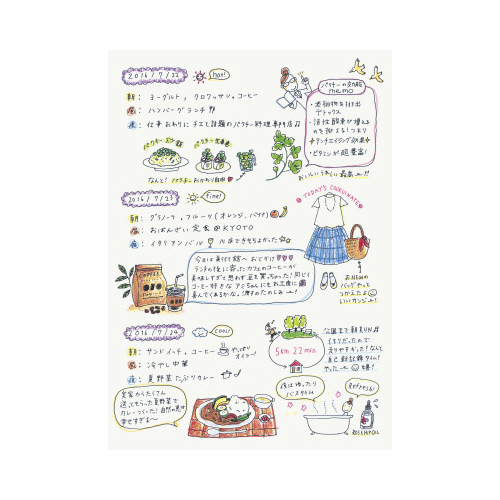 2016/7/22 hot!
朝: ヨーグルト, クロワッサン, コーヒー
昼: ハンバーグランチ
夜: 仕事おわりにチエと話題のパクチー料理専門店♫
パクチーの効能
memo
・老廃物を排出
デトックス
・活性酸素が増える
のを抑える!つまり
アンチエイジング効果
・ビタミンが超豊富!
なんと!パクチーおかわり自由♥
おいしいうれしい最高
2016/7/23 fine!
朝: グラノーラ, フルーツ(オレンジ, バナナ)
昼: おばんざい定食@KYOTO
夜: イタリアンバル 川床できもちよかった
TODAY'S COORDINATE
今日は美付て語へおでかけ♥
ランチの後に寄ったカフェのコーヒーが
美味しすぎて思わず豆を買っちゃった!同じく
コーヒー好きな
COFFEE
おNEWの
バッグやって
つかえたよ
いいカンジ
2016/7/24 cool!
朝: サンドイッチ, コーヒー やっぱり
昼: 冷やし中華
夜: 夏野菜たっぷりカレー
5km 22min.
公園まで朝RUN♫
くもりだったので
走りやすかった!なんと
自己新記録タイム!
やったー
実家からたくさん
送ってもらった夏野菜で
カレーつくった!自然の恵み
幸せすぎる〜
夜はゆったり
バスタイム
Refresh!
ROSEHIPOIL